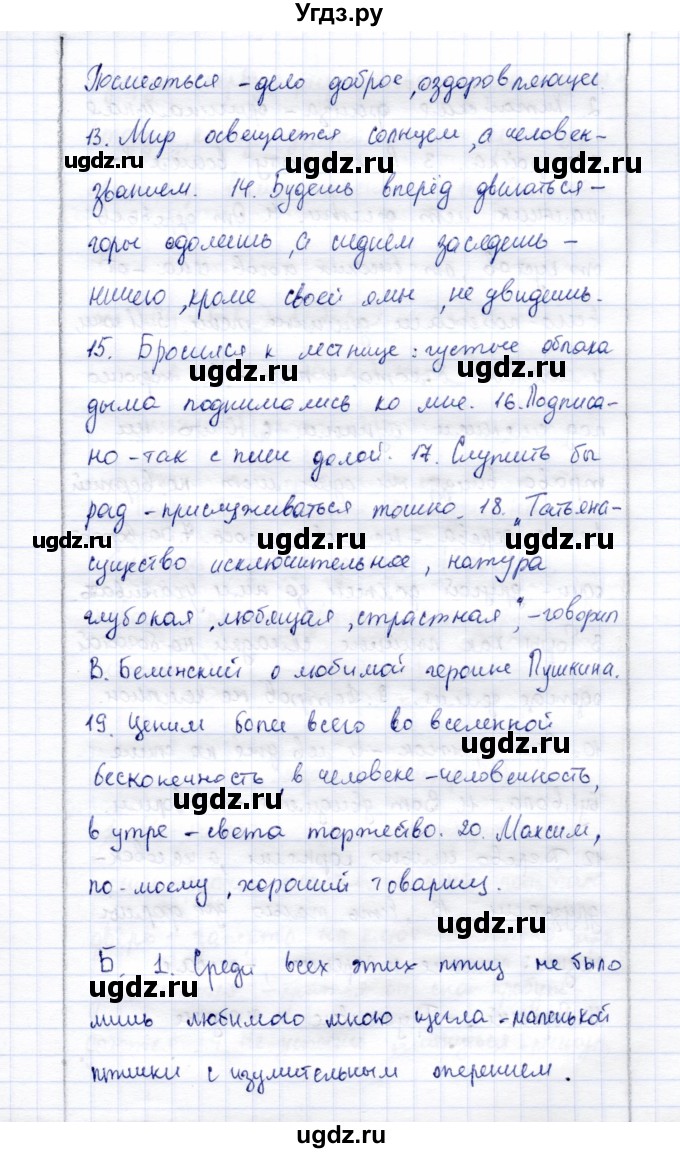 Угдз.ру
Посмеяться - дело доброе, оздоровляющее.
13. Мир освещается солнцем, а человек-
ugdz.ru ugdz.ru
званием. 14. Будешь вперёд двигаться -
горы одолеешь, а сиднем заседешь -
ничего, кроме своей ямы, не увидишь.
15. Бросился к лестнице: густые облака
ugdz.ru ugdz.ru
дыма поднимались ко мне. 16. Подписа-
но - так с плеч долой. 17. Служить бы
рад - прислуживаться тошно 18. "Татьяна-
ugdz.ru ugdz.ru ugdz.ru
существо исключительное, натура
глубокая, любящая, страстная", - говорил
В. Белинский о любимой героине Пушкина.
19. Ценим боле всего во вселенной
ugdz.ru
бесконечность, в человеке - человечность,
ugdz.ru ugdz.ru
в утре - света торжество. 20. Максим,
по-моему, хороший товарищ.
ugdz.ru
Б. 1. Среди всех этих птиц не было
ugdz.ru
лишь любимого мною щегла - маленькой
птички с изумительным оперением.
ugdz.ru